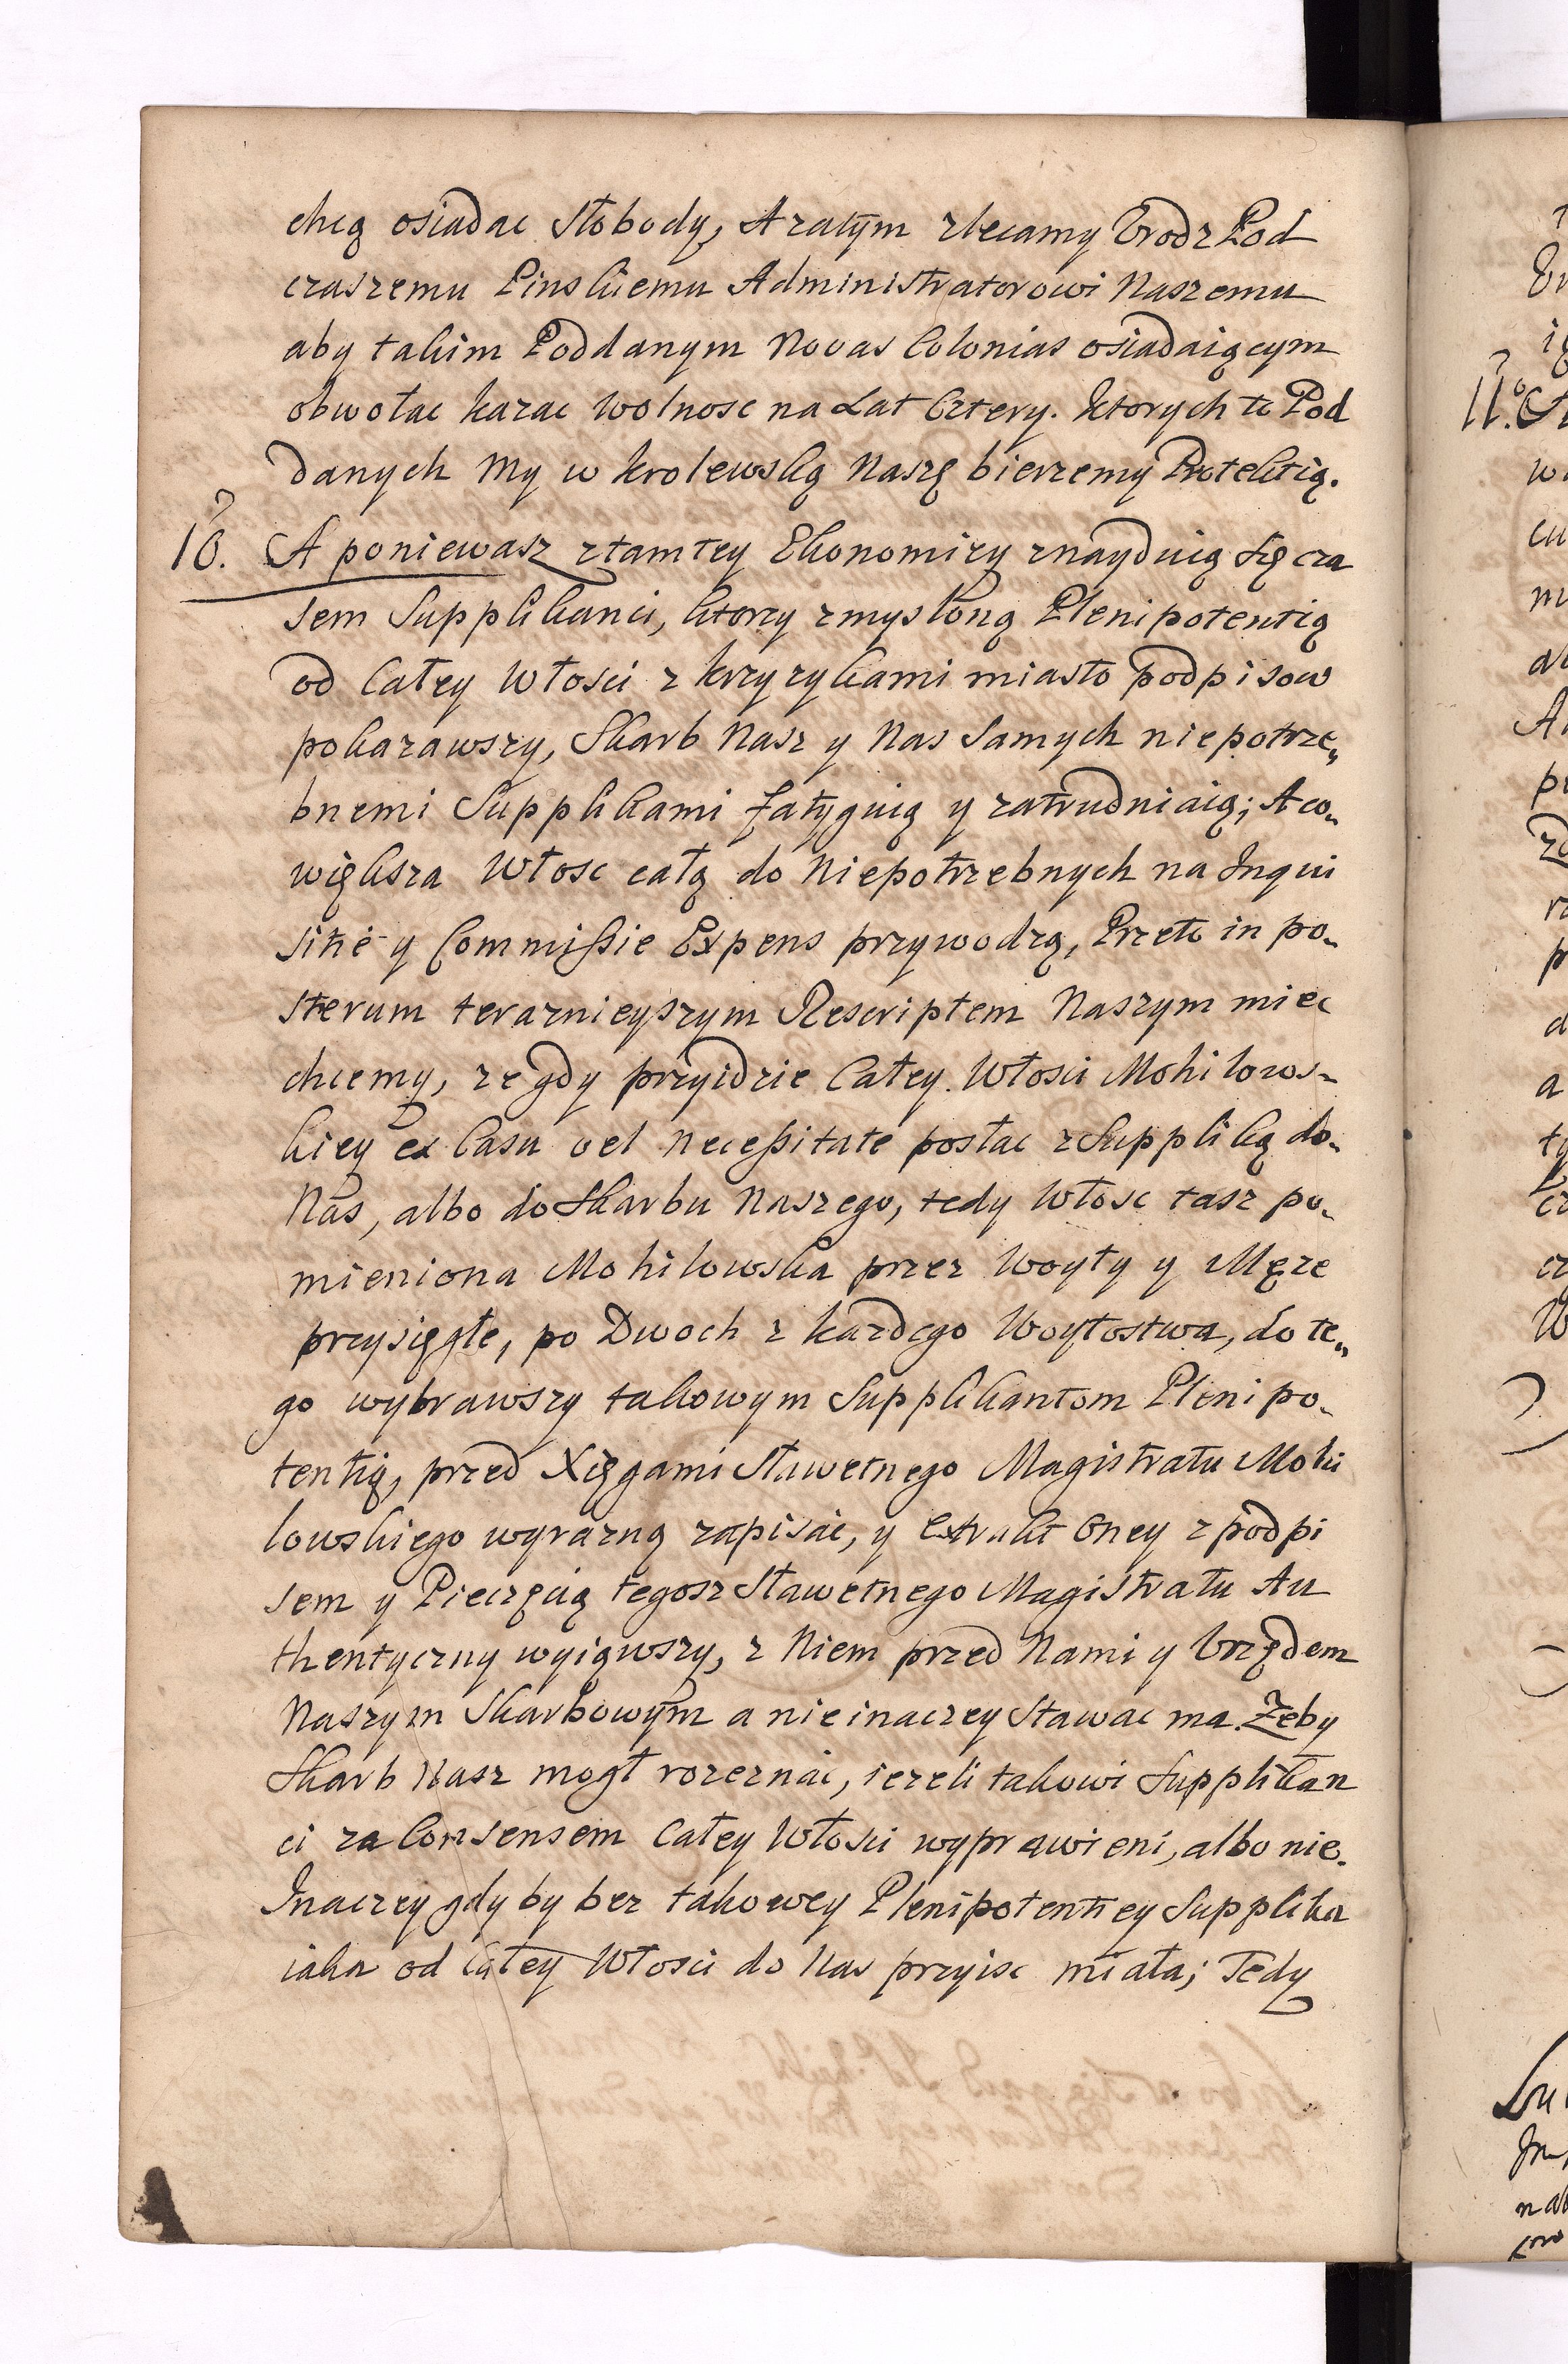 chcą osiadac Słobody, A zatym zlecamy Urodz Pod
czaszemu Pinskiemu Administratorowi Naszemu
aby takim Poddanym Novas Colonias osiadaiącym
obwołac kazac wolnosc na Lat Cztery. ktorych to Pod
danych My w krolewską Naszę bierzemy Protekcią.
10. A poniewasz z tamtey Ekonomizy znayduią się cza
sem Supplikanci, ktorzy zmysloną Plenipotentią
od Całey Włosci z krzyzykami miasto podpisow
pokazawszy, Skarb Nasz y Nas Samych niepotrze„
bnemi Supplikami fatyguią y zatrudniaią; A co-
większa Włosc całą do Niepotrzebnych na Inqui
sitie y Commissie Expens przywodzą, Przeto in po-
sterum teraznieyszym Rescriptem Naszym miec
chcemy, ze gdy przyidzie Całey Włosci Mohilows-
kiey ex Casu vel necessitate posłac z Suppliką do-
Nas, albo do Skarbu Naszego, tedy Włosc tasz po-
mieniona Mohilowska przez Woyty y Męze
przysięgłe, po Dwoch z kazdego Woytostwa, do te„
go wybrawszy takowym Supplikantom Plenipo-
tentię, przed Xięgami Sławetnego Magistratu Mohi
lowskiego wyrazną zapisac, y extrakt oney z podpi
sem y Pieczęcią tegosz Sławetnego Magistratu Au
thentyczny wyiąwszy, z Niem przed Nami y Urzędem
Naszym Skarbowym a nie inaczey Stawac ma. Zeby
Skarb Nasz mogł rozeznac, iezeli takowi Supplikan
ci za Consensem Całey Włosci wyprawieni, albo nie.
Inaczey gdy by bez takowey Plenipotentiey Supplika
iaka od Całey Włosci do Nas przyisc miała; Tedy